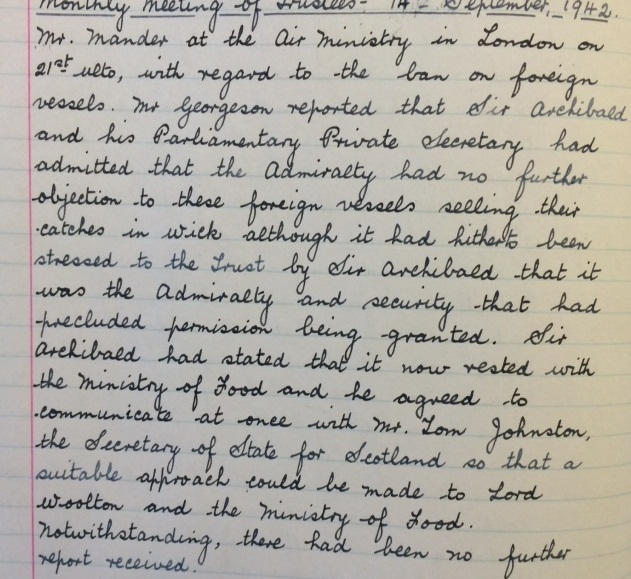 Monthly Meeting of Trustees - 14th September, 1942.
Mr. Mander at the Air Ministry in London on
21st ulto, with regard to the ban on foreign
vessels. Mr Georgeson reported that Sir Archibald
and his Parliamentary Private Secretary had
admitted that the Admiralty had no further
objection to these foreign vessels selling their
catches in Wick although it had hitherto been
stressed to the Trust by Sir Archibald that it
was the Admiralty and security that had
precluded permission being granted. Sir
Archibald had stated that it now rested with
the Ministry of Food and he agreed to
communicate at once with Mr. Tom Johnston,
the Secretary of State for Scotland so that a
suitable approach could be made to Lord
Woolton and the Ministry of Food.
Notwithstanding, there had been no further
report received.